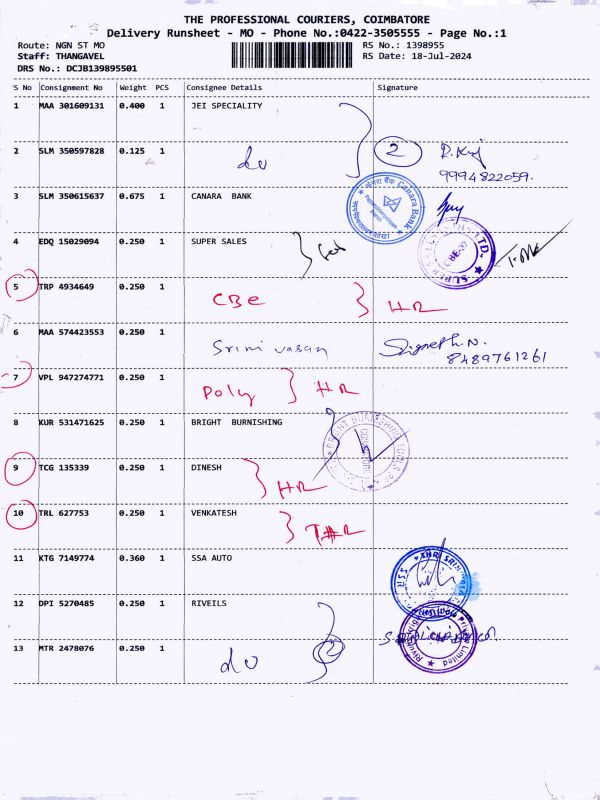 THE PROFESSIONAL COURIERS, COIMBATORE
Delivery Runsheet - MO - Phone No.:0422-3505555 - Page No.:1
Route: NGN ST MO RS No.: 1398955
Staff: THANGAVEL RS Date: 18-Jul-2024
DRS No.: DCJB139895501
S No Consignment No Weight PCS Consignee Details Signature
1 MAA 301609131 0.400 1 JEI SPECIALITY
2 SLM 350597828 0.125 1 do 2
9994822059.
3 SLM 350615637 0.675 1 CANARA BANK
Canara Bank
4 EDQ 15029094 0.250 1 SUPER SALES
CBE-37
5 TRP 4934649 0.250 1 CBE HR
6 MAA 574423553 0.250 1 Srinivasan
8489761261
7 VPL 947274771 0.250 1 Poly HR
8 KUR 531471625 0.250 1 BRIGHT BURNISHING
9 TCG 135339 0.250 1 DINESH HR
10 TRL 627753 0.250 1 VENKATESH
11 KTG 7149774 0.360 1 SSA AUTO
12 DPI 5270485 0.250 1 RIVEILS
13 MTR 2478076 0.250 1 do 2
Private Limited